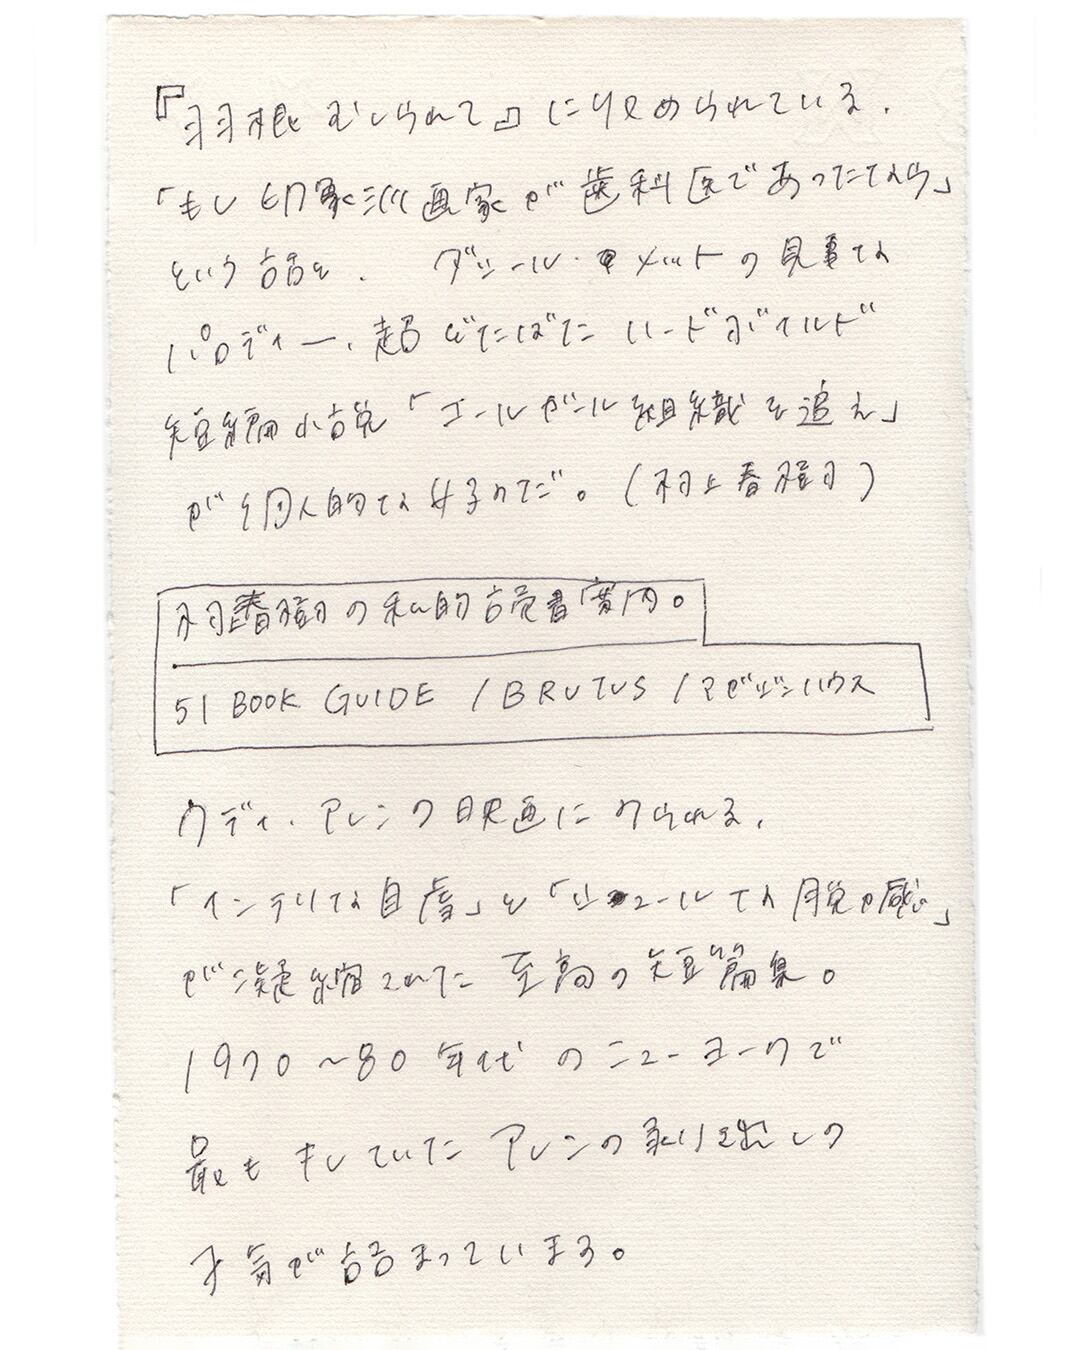 『羽根むしられて』に収められている、
「もし印象派画家が歯科医であったなら」
という話と、ダシール・ハメットの見事な
パロディー、超どたばたハードボイルド
短編小説「コールガール組織を追え」
が個人的な好みだ。(村上春樹)
村上春樹の私的読書案内。
51 BOOK GUIDE / BRUTUS / マガジンハウス
ウディ・アレンの映画にみられる、
「インテリな自虐」と「シュールな脱力感」
が凝縮された至高の短篇集。
1970~80年代のニューヨークで
最もキレていたアレンの剥き出しの
才気が詰まっています。